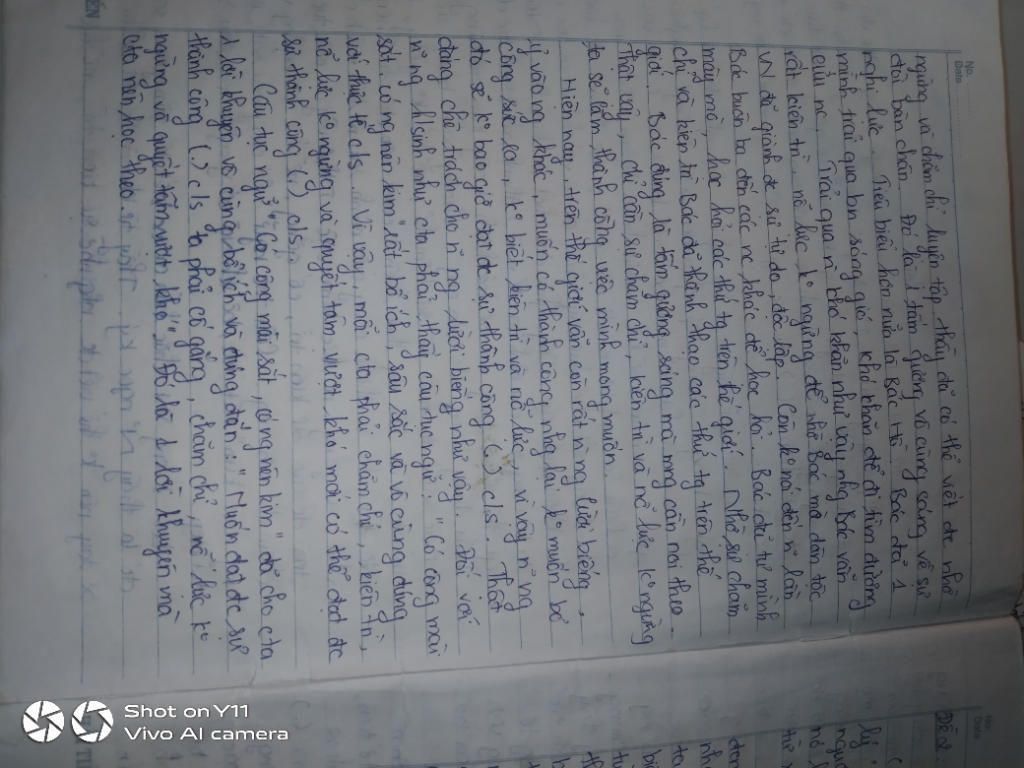 No.
Date
ngừng và chăm chỉ luyện tập, thầy đã có thể viết đc nhờ
đôi bàn chân. Đó là 1 tấm gương vô cùng sáng về sự
nghị lực. Tiêu biểu hơn nữa là Bác Hồ. Bác đã 1
mình trải qua bn sóng gió, khó khăn để đi tìm đường
cứu nc. Trải qua n~ khó khăn như vậy nhg Bác vẫn
rất kiên trì, nỗ lực, k° ngừng để nhờ Bác mà dân tộc
VN đã giành đc sự tự do, độc lập. Còn k° nói đến n~ lần
Bác buôn ba đến các nc khác để học hỏi. Bác đã tự mình
mày mò, học hỏi các thứ tg trên thế giới. Nhờ sự chăm
chỉ và kiên trì Bác đã thành thạo các thứ tg trên thế
giới. Bác đúng là tấm gương sáng mà mng cần noi theo.
Thật vậy, chỉ cần sự chăm chỉ, kiên trì và nỗ lực k° ngừng
ta sẽ làm thành công việc mình mong muốn.
Hiện nay, trên thế giới vẫn còn rất n~ ng lười biếng,
ỷ vào ng khác, muốn có thành công nhg lại k° muốn bỏ
công sức ra, k° biết kiên trì và nỗ lực, vì vậy n~ ng
đó sẽ k° bao giờ đạt đc sự thành công (.) c/s. Thật
đáng chê trách cho n~ ng lười biếng như vậy. Đối với
n~ ng h/sinh như cta, phải thấy câu tục ngữ: " Có công mài
sắt, có ng nên kim" rất bổ ích, sâu sắc và vô cùng đúng
với thực tế c/s. Vì vậy, mỗi cta phải chăm chỉ, kiên trì,
nỗ lực k° ngừng và quyết tâm vượt khó mới có thể đạt đc
sự thành công (.) c/s.
Câu tục ngữ " Có công mài sắt, có ng nên kim" đã cho cta
1 lời khuyên vô cùng bổ ích và đúng đắn: " Muốn đạt đc sự
thành công (.) c/s ta phải cố gắng, chăm chỉ, nỗ lực k°
ngừng và quyết tâm vượt khó". Đó là 1 lời khuyên mà
cta nên học theo.
Shot on Y11
Vivo AI camera